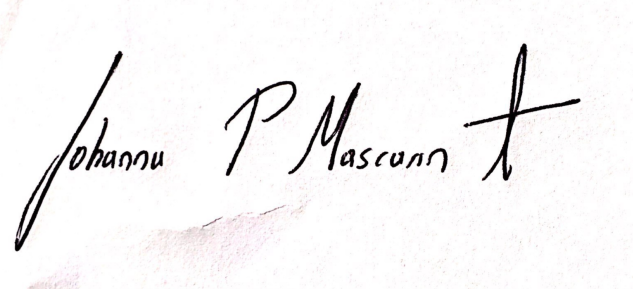 Johanna P Mascann t